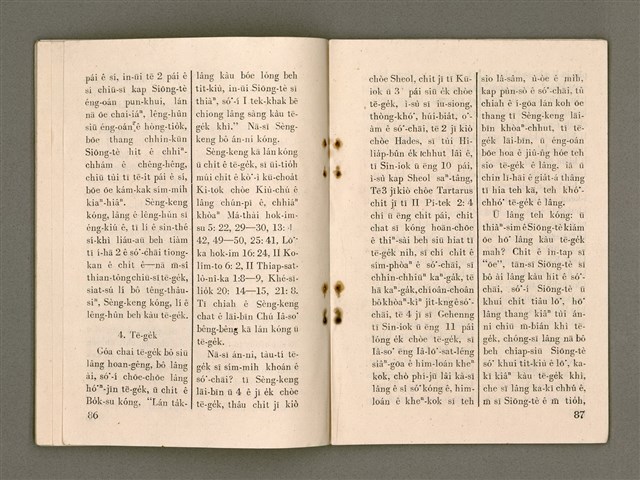 pái ê sí, in-ūi tē 2 pái ê
sí chiū-sī kap Siōng-tè
éng-oán pun-khui, lán
nā ōe chai-iáⁿ, lêng-hûn
siū éng-oán ê hòng-tiòk,
bōe thang chhin-kūn
Siōng-tè hit ê chhiⁿ-
chhám ê chêng-hêng,
chiū tùi tī tē-it pái ê sí,
bōe ōe kám-kak sim-mih
kiaⁿ-hiâⁿ. Sèng-keng
kóng, lâng ê lêng-hûn sī
éng-kiú ê, tī lī ê sin-thé
sí-khì liáu-āu beh tiàm
tī i-hā 2 ê só͘-chāi tiong-
kan ê chit ê—nā m̄-sī
thian-tông chiū-sī tē-gèk,
siat-sú lí bô têng-thâu-
siⁿ, Sèng-keng kóng, lí ê
lêng-hûn beh kàu tē-gèk.
4. Tē-gèk
Góa chai tē-gèk bô siū
lâng hoan-gêng, bô lâng
ài, só͘-í chōe-chōe lâng
hō͘ⁿ-jīn tē-gèk, ū chit ê
Bòk-su kóng. “Lán tàk-
86
lâng kàu bóe lóng beh
tit-kiù, in-ūi Siōng-tè sī
thiàⁿ, só͘-í I tek-khak bē
chiong lâng sàng kàu tē-
gèk khì.” Nā-sī Sèng-
keng bô án-ni kóng.
Sèng-keng kā lán kóng
ū chit ê tē-gèk, sī ùi-tiòh
múi chit ê kò͘-ì kū-choàt
Ki-tok chòe Kiù-chú ê
lâng chún-pī ê, chhiáⁿ
khòaⁿ Má-thài hok-im-
su 5: 22, 29—30, 13: 4
42, 49—50, 25: 41, Lō͘-
ka hok-im 16: 24, II Ko-
lîm-to 6: 2, II Thiap-sat-
lô-nî-ka 1:8—9, Khé-sī-
liòk 20: 14—15, 21: 8.
Tī chiah ê Sèng-keng
chat ê lāi-bīn Chú Iâ-so͘
bêng-bêng kā lán kóng ū
tē-gèk.
Nā-sī án-ni, tàu-tí tē-
gèk sī sím-mih khoán ê
só͘-chāi? tī Sèng-keng
lāi-bīn ū 4 ê jī èk chòe
tē-gèk, thâu chit jī kiò
chòe Sheol, chit jī tī Kū-
iok ū 3 pái siū èk chòe
tē-gèk, ì-sù sī iu-siong,
thòng-khó͘, húi-biàt, o͘-
àm ê só͘-chāi, tē 2 jī kiò
chòe Hades, sī tùi Hi-
liàp-bûn èk khhut lâi ê,
tī Sin-iok ū ēng 10 pái,
ì-sù kap Sheol saⁿ-tâng,
Tē3 jī kiò chòe Tartarus
chit jī tī II Pí-tek 2: 4
chī ū ēng chit pái, chit
chat sī kóng hoān-chōe
ê thiⁿ-sài beh siu hiat tī
tē-gèk nih, sī chí chit ê
sim-phòaⁿ ê só͘-chāi, sī
chhim-chhiúⁿ kaⁿ-gàk, tē
hā kaⁿ-gàk, chioàn-choân
bô khòaⁿ-kìⁿ jit-kng ê só͘-
chāi, tē 4 jī sī Gehenng
tī Sin-iok ū ēng 11 pái
lóng èk chòe tē-gèk, sī
Iâ-so͘ ēng Iâ-lō͘-sat-léng
siâⁿ-gōa ê him-loán kheⁿ
kok, chò phì-jū lâi kà-sī
lâng ê sí só͘ kóng ê, him-
loân ê kheⁿ-kok sī teh
sio lâ-sâm, ù-òe ê mih,
kap pùn-sò ê só͘-chāi, tú
chiah ê ì-gōa lán koh ōe
thang tī Sèng-keng lāi-
bīn khòaⁿ-chhut, tī tē-
gèk lāi-bīn, ū éng-oán
bōe hoa ê jiû-n̂g hóe teh
sio tē-gèk ê lâng, iā ū
chin lī-hāi ê giàt-á thâng
tī hia teh kā, teh khó͘-
chhó͘ tē-gèk ê lâng.
Ū lâng teh kóng: ū
thiàⁿ-sim ê Siōng-tè kiám
ōe hō͘ lâng kàu tē-gèk
mah? Chit ê ìn-tap sī
“ōe”, tān-sī Siōng-tè sī
bô ài lâng kàu hit ê só͘-
chāi, só͘-í Siōng-tè ū
khui chit tiâu lō͘, hō͘
lâng thang kiâⁿ tùi án-
ni chiū m̄-bián khì tē-
gèk, chóng-sī lâng nā bô
beh chiap-siū Siōng-tè
só͘ khui tit-kiù ê lō͘, ka-
kī kiâⁿ kàu tē-gèk khì,
che sī lâng ka-kī chhú ê,
m̄ sī Siōng-tè ê m̄ tiòh,
87